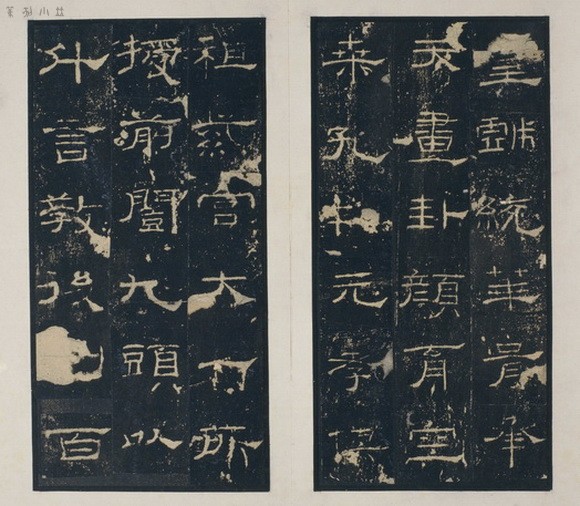 皇戲統華胥承
天畫卦顏育空
桑孔制元孝俱
祖紫宮大一所
授前闓九頭以
什言教後百